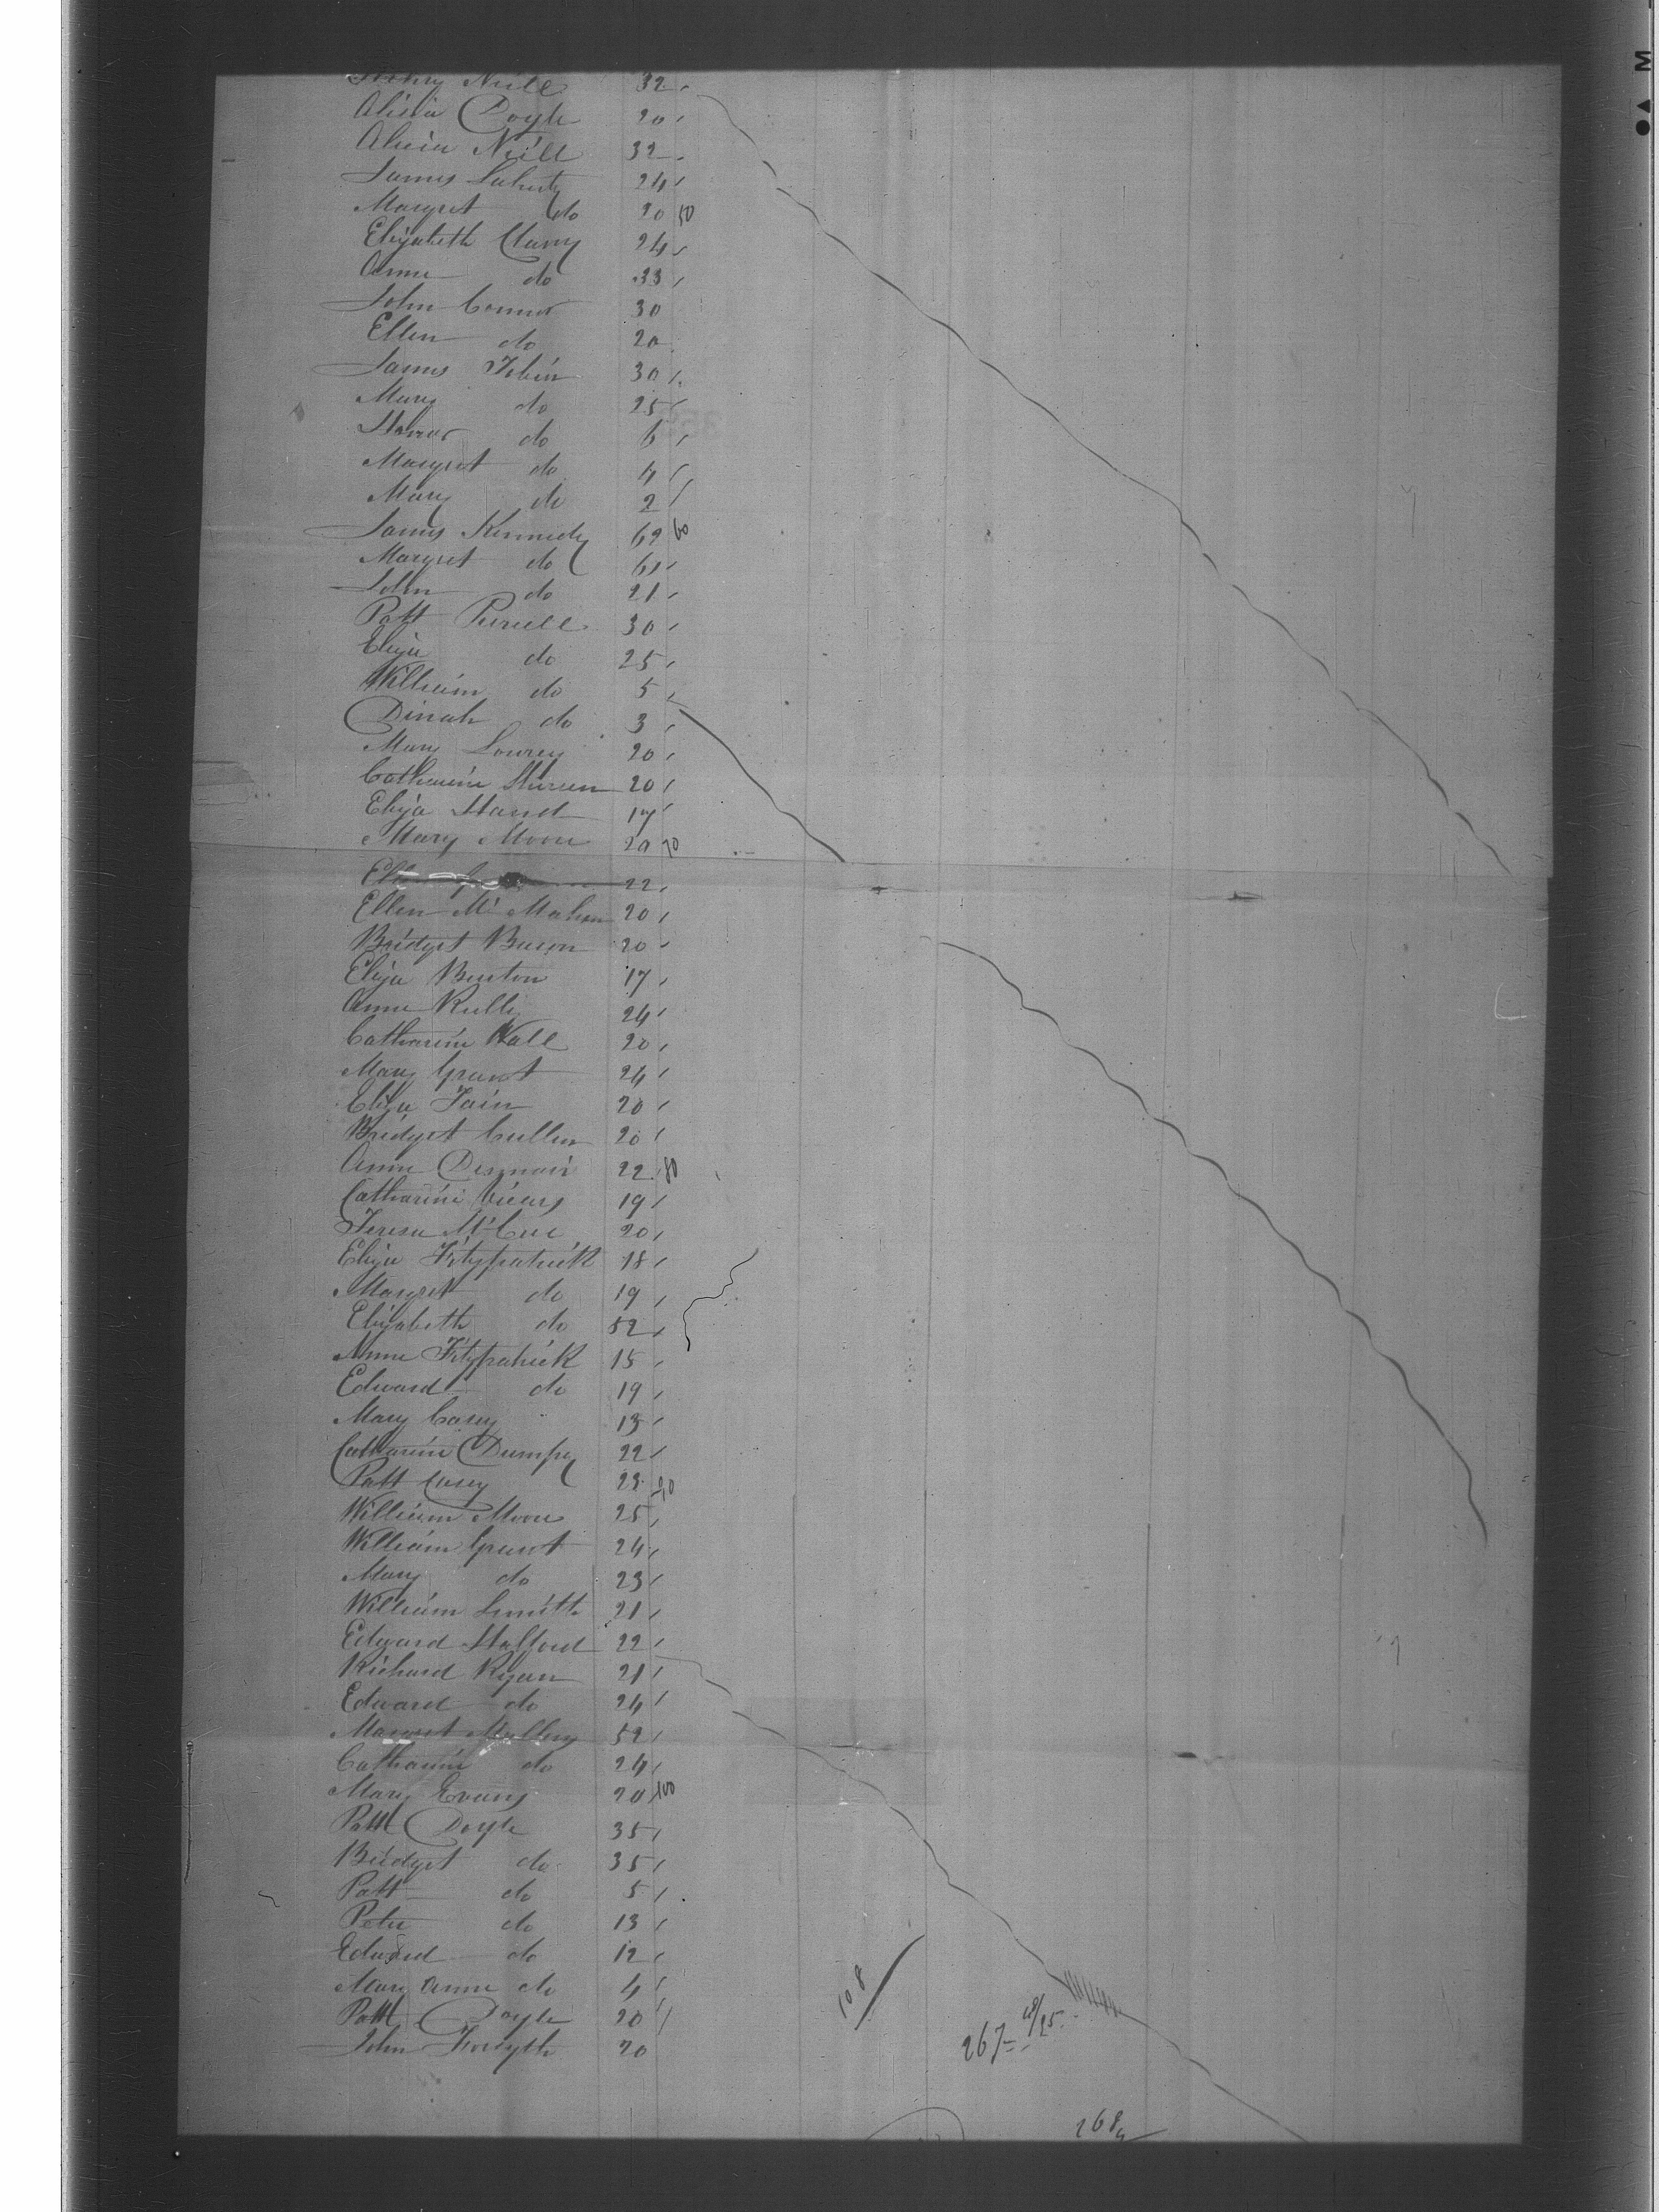 Neill 32
Alicia Doyle 20
Alicia Neill 32
James 24
Margret do 20 50
Elizabeth Clany 24
Anne do 33
John Connor 30
Ellen do 20
James Tobin 30
Mary do 25
Honor do 6
Margret do 4
Mary do 2
James Kennedy 62 60
Margret do 61
John do 21
Patt Purcell 30
Eliza do 25
William do 5
Dinah do 3
Mary Lowrey 20
Catharine 20
Eliza 17
Mary Moore 20 70
22
Ellen Mc Mahon 20
Bridget 20
Eliza Burton 17
Anne Kelly 24
Catharine Wall 20
Mary Grant 24
Eliza Fain 20
Bridget Cullen 20
Anne 22 80
Catharine Vicars 19
Teresa McCue 20
Eliza Fitzpatrick 18
Margret do 19
Elizabeth do 52
Anne Fitzpatrick 15
Edward do 19
Mary Casey 13
Catharine Dempsy 22
Patt Casey 23 90
William Moore 25
William Grant 24
Mary do 23
William Smith 21
Edward Stafford 22
Richard Ryan 21
Edward do 24
Margret Mullen 52
Catharine do 24
Mary Evans 20 100
Patt Doyle 35
Bridget do 35
Patt do 5
Peter do 13
Edward do 12
Mary Anne do 4
Patt Doyle 20
John Forsyth 20
108
267
268